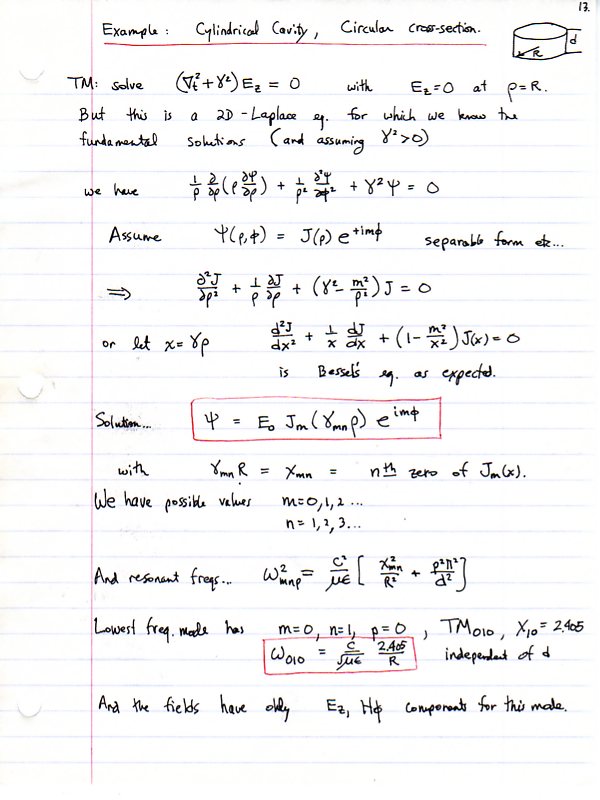 13.
Example: Cylindrical Cavity, Circular cross-section.
d
R
TM: solve (∇ₜ² + γ²) E_z = 0 with E_z = 0 at ρ = R.
But this is a 2D-Laplace eq. for which we know the
fundamental solutions (and assuming γ² > 0)
we have 1/ρ ∂/∂ρ (ρ ∂Ψ/∂ρ) + 1/ρ² ∂²Ψ/∂φ² + γ²Ψ = 0
Assume Ψ(ρ,φ) = J(ρ) e^{+imφ} separable form etc...
⇒ ∂²J/∂ρ² + 1/ρ ∂J/∂ρ + (γ² - m²/ρ²) J = 0
or let x = γρ d²J/dx² + 1/x dJ/dx + (1 - m²/x²) J(x) = 0
is Bessel's eq. as expected.
Solution... Ψ = E₀ J_m (γ_mn ρ) e^{imφ}
with γ_mn R = x_mn = nth zero of J_m(x).
We have possible values m = 0, 1, 2 ...
n = 1, 2, 3...
And resonant freqs... ω²_mnp = c²/με [ x²_mn/R² + p²π²/d² ]
Lowest freq. mode has m=0, n=1, p=0, TM₀₁₀, X₁₀ = 2.405
ω₀₁₀ = c/√με 2.405/R independent of d
And the fields have only E_z, Hφ components for this mode.